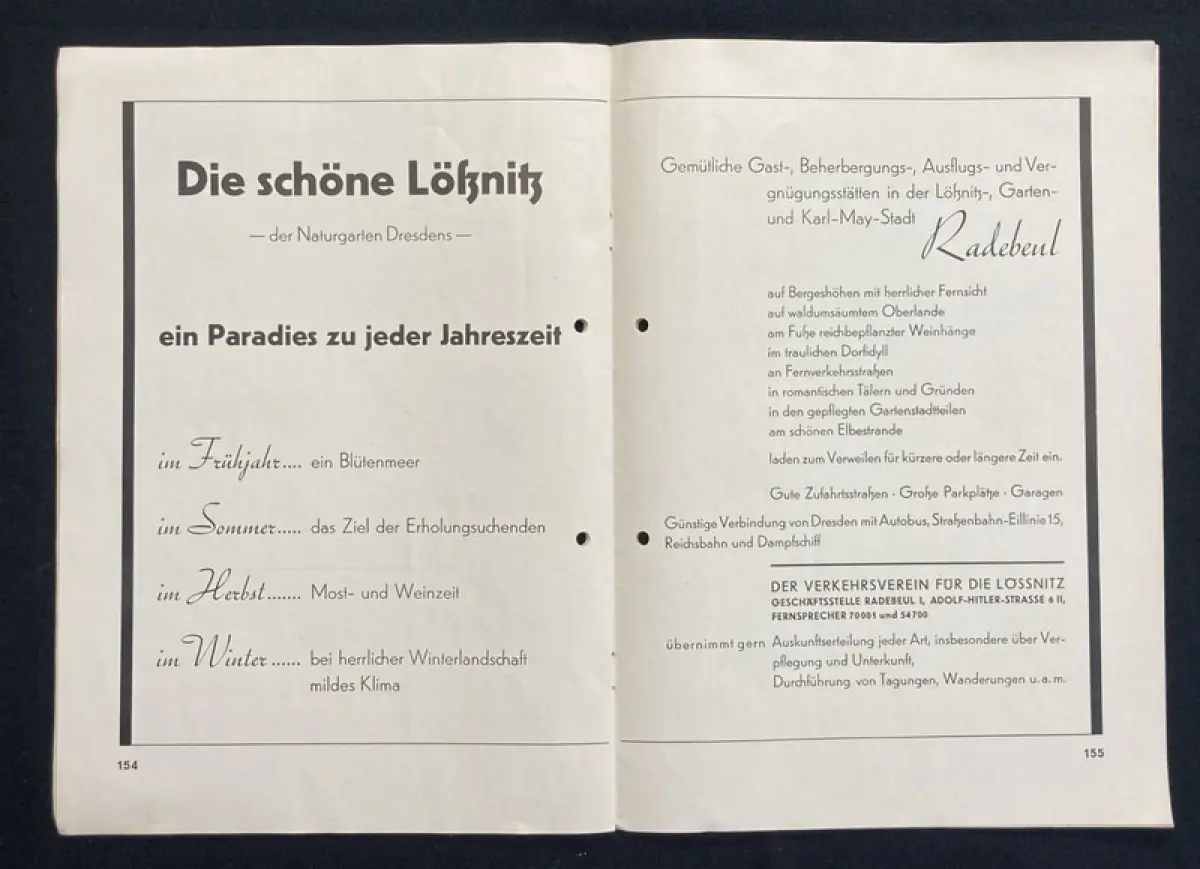 Die schöne Lößnitz
— der Naturgarten Dresdens —
ein Paradies zu jeder Jahreszeit
im Frühjahr.... ein Blütenmeer
im Sommer..... das Ziel der Erholungsuchenden
im Herbst....... Most- und Weinzeit
im Winter...... bei herrlicher Winterlandschaft
mildes Klima
154
Gemütliche Gast-, Beherbergungs-, Ausflugs- und Ver-
gnügungsstätten in der Lößnitz-, Garten-
und Karl-May-Stadt
Radebeul
auf Bergeshöhen mit herrlicher Fernsicht
auf waldumsäumtem Oberlande
am Fuße reichbepflanzter Weinhänge
im traulichen Dorfidyll
an Fernverkehrsstraßen
in romantischen Tälern und Gründen
in den gepflegten Gartenstadtteilen
am schönen Elbestrande
laden zum Verweilen für kürzere oder längere Zeit ein.
Gute Zufahrtsstraßen · Große Parkplätze · Garagen
Günstige Verbindung von Dresden mit Autobus, Straßenbahn-Eillinie 15,
Reichsbahn und Dampfschiff
DER VERKEHRSVEREIN FÜR DIE LÖSSNITZ
GESCHÄFTSSTELLE RADEBEUL I, ADOLF-HITLER-STRASSE 6 II,
FERNSPRECHER 70001 und 54700
übernimmt gern Auskunftserteilung jeder Art, insbesondere über Ver-
pflegung und Unterkunft,
Durchführung von Tagungen, Wanderungen u. a. m.
155